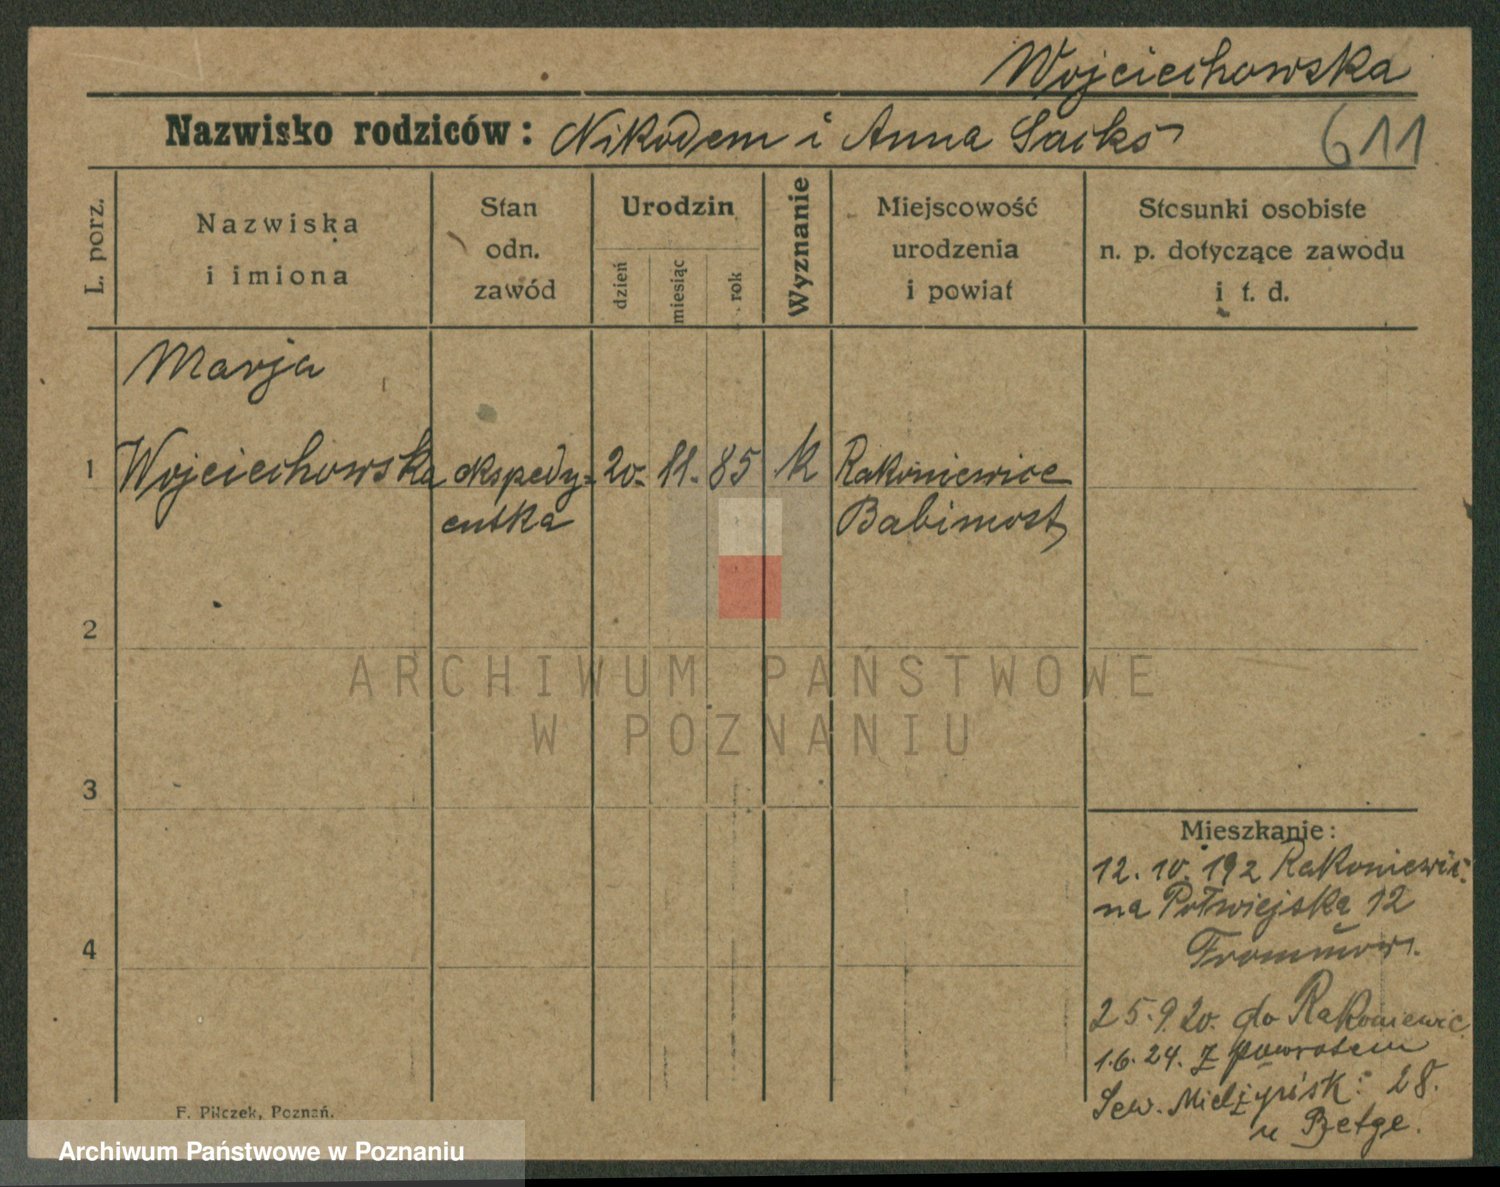 Wojciechowska
Nazwisko rodziców: Nikodem i Anna
611
L. porz.
Nazwiska
i imiona
Stan
odn.
zawód
Urodzin
dzień
miesiąc
rok
Wyznanie
Miejscowość
urodzenia
i powiat
Stosunki osobiste
n. p. dotyczące zawodu
i t. d.
Marja
1 Wojciechowska ekspedy- 20. 11. 85 k Rakoniewice
entka Babimost
2
3
4
Mieszkanie:
12. 10. 192 Rakoniewic.
na Półwiejska 12
25.9.20. do Rakoniewic
1.6.24. z powrotem
Sew. Mielżyńsk: 28.
u Betge.
F. Pilczek, Poznań.
ARCHIWUM PAŃSTWOWE
W POZNANIU
Archiwum Państwowe w Poznaniu